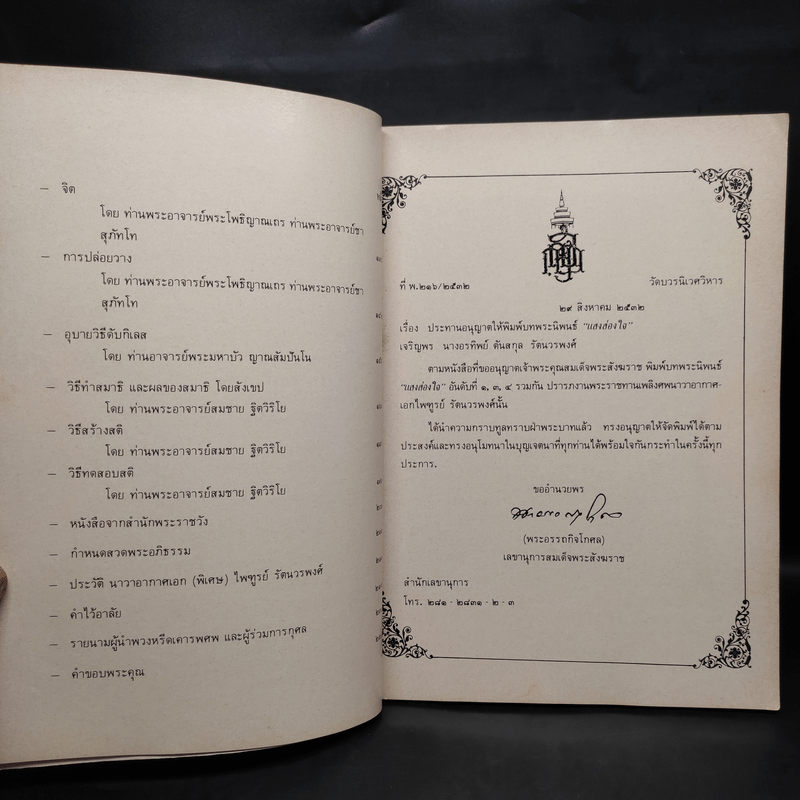 – จิต
โดย ท่านพระอาจารย์พระโพธิญาณเถร ท่านพระอาจารย์ชา
สุภัทโท
– การปล่อยวาง
โดย ท่านพระอาจารย์พระโพธิญาณเถร ท่านพระอาจารย์ชา
สุภัทโท
– อุบายวิธีดับกิเลส
โดย ท่านอาจารย์พระมหาบัว ญาณสัมปันโน
– วิธีทำสมาธิ และผลของสมาธิ โดยสังเขป
โดย ท่านพระอาจารย์สมชาย ฐิตวิริโย
– วิธีสร้างสติ
โดย ท่านพระอาจารย์สมชาย ฐิตวิริโย
– วิธีทดสอบสติ
โดย ท่านพระอาจารย์สมชาย ฐิตวิริโย
– หนังสือจากสำนักพระราชวัง
– กำหนดสวดพระอภิธรรม
– ประวัติ นาวาอากาศเอก (พิเศษ) ไพฑูรย์ รัตนวรพงศ์
– คำไว้อาลัย
– รายนามผู้นำพวงหรีดเคารพศพ และผู้ร่วมการกุศล
– คำขอบพระคุณ
ที่ พ.๒๑๖/๒๕๓๒ วัดบวรนิเวศวิหาร
๒๙ สิงหาคม ๒๕๓๒
เรื่อง ประทานอนุญาตให้พิมพ์บทพระนิพนธ์ "แสงส่องใจ"
เจริญพร นางอรทิพย์ ตันสกุล รัตนวรพงศ์
ตามหนังสือที่ขออนุญาตเจ้าพระคุณสมเด็จพระสังฆราช พิมพ์บทพระนิพนธ์
"แสงส่องใจ" อันดับที่ ๑, ๓, ๔ รวมกัน ปรารภงานพระราชทานเพลิงศพนาวาอากาศ-
เอกไพฑูรย์ รัตนวรพงศ์นั้น
ได้นำความกราบทูลทราบฝ่าพระบาทแล้ว ทรงอนุญาตให้จัดพิมพ์ได้ตาม
ประสงค์และทรงอนุโมทนาในบุญเจตนาที่ทุกท่านได้พร้อมใจกันกระทำในครั้งนี้ทุก
ประการ.
ขออำนวยพร
(พระอรรถกิจโกศล)
เลขานุการสมเด็จพระสังฆราช
สำนักเลขานุการ
โทร. ๒๘๑ - ๒๘๓๑ - ๒ - ๓